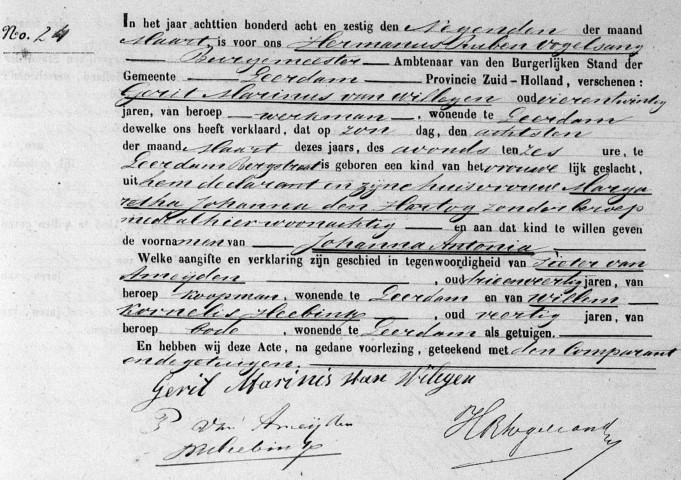 No. 24
In het jaar achttien honderd acht en zestig den Negenden der maand
Maart, is voor ons Hermanus Ruben Vogelsang
Burgemeester Ambtenaar van den Burgerlijken Stand der
Gemeente Leerdam Provincie Zuid-Holland, verschenen:
Gerit Marinus van Willegen oud vierentwintig
jaren, van beroep werkman, wonende te Leerdam
dewelke ons heeft verklaard, dat op zon dag, den achtsten
der maand Maart dezes jaars, des avonds ten zes ure, te
Leerdam Bergstraat is geboren een kind van het vrouwe lijk geslacht,
uit hem declarant en zijne huisvrouw Marga
retha Johanna den Hartog zonder beroep
mede alhier woonachtig en aan dat kind te willen geven
de voornamen van Johanna Antonia
Welke aangifte en verklaring zijn geschied in tegenwoordigheid van Pieter van
Ameyden, oud drieenveertig jaren, van
beroep koopman, wonende te Leerdam en van Willem
Kornelis Heebink, oud veertig jaren, van
beroep bode, wonende te Leerdam als getuigen.
En hebben wij deze Acte, na gedane voorlezing, geteekend met den Comparant
en de getuigen.
Gerit Marinis van Wilegen
P van Ameyden
HRVogelsang
WKHeebink